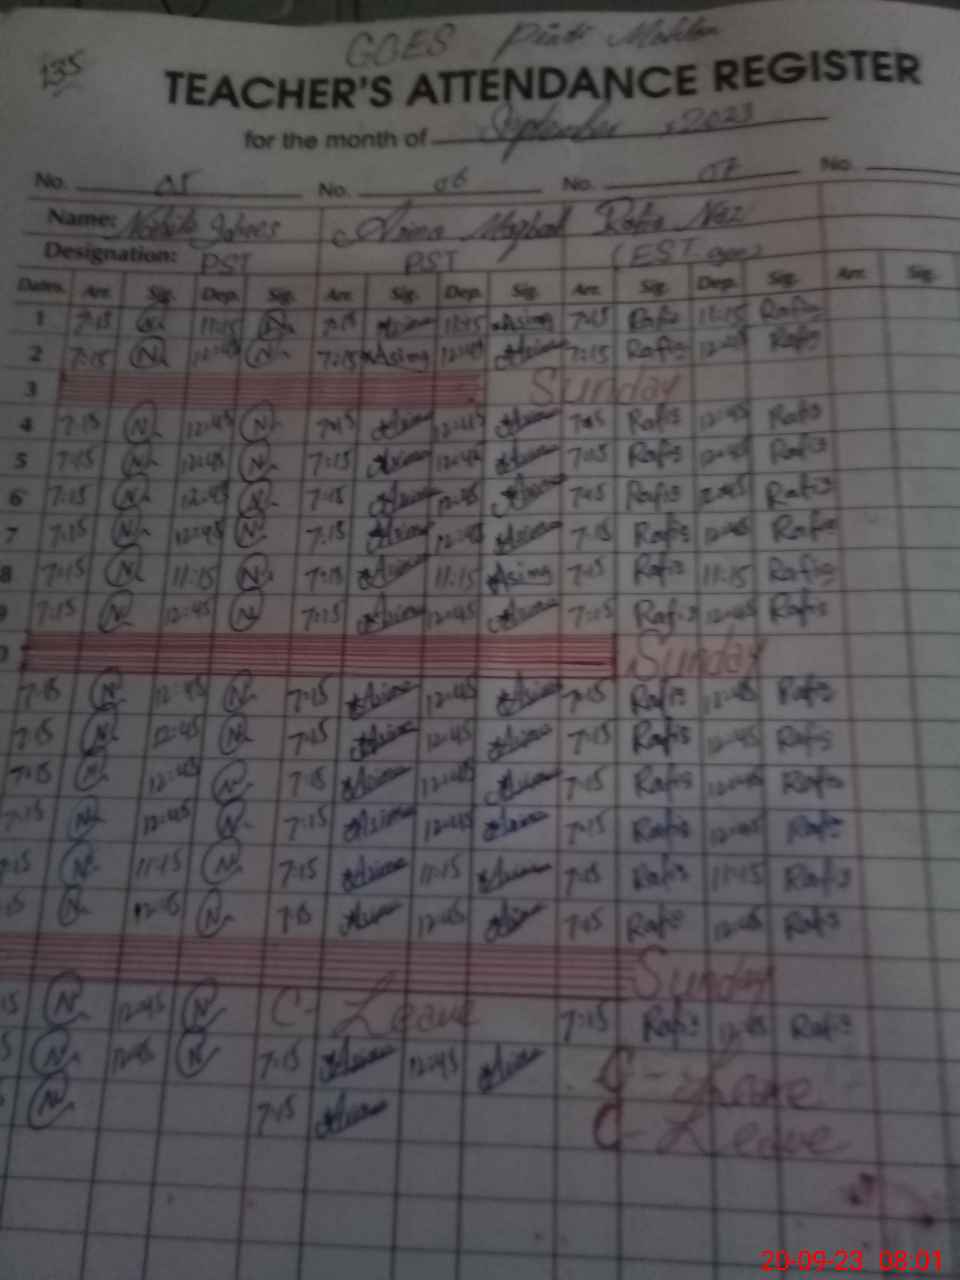 135
GGES Pindi
TEACHER'S ATTENDANCE REGISTER
for the month of September, 2023
No. 05 No. 06 No. 07 No.
Name: Asima Rafia Naz
Designation: PST PST (EST
Dates. Arr. Sig. Dep. Sig. Arr. Sig. Dep. Sig. Arr. Sig. Dep. Sig. Arr. Sig.
1 7:15 N 11:15 N 7:15 Asima 11:15 Asima 7:15 Rafia 11:15 Rafia
2 7:15 N 12:45 N 7:15 Asima 12:45 Asima 7:15 Rafia 12:45 Rafia
3 Sunday
4 7:15 N 12:45 N 7:15 Asima 12:45 Asima 7:15 Rafia 12:45 Rafia
5 7:15 N 12:45 N 7:15 Asima 12:45 Asima 7:15 Rafia 12:45 Rafia
6 7:15 N 12:45 N 7:15 Asima 12:45 Asima 7:15 Rafia 12:45 Rafia
7 7:15 N 12:45 N 7:15 Asima 12:45 Asima 7:15 Rafia 12:45 Rafia
8 7:15 N 11:15 N 7:15 Asima 11:15 Asima 7:15 Rafia 11:15 Rafia
9 7:15 N 12:45 N 7:15 Asima 12:45 Asima 7:15 Rafia 12:45 Rafia
Sunday
7:15 N 12:45 N 7:15 Asima 12:45 Asima 7:15 Rafia 12:45 Rafia
7:15 N 12:45 N 7:15 Asima 12:45 Asima 7:15 Rafia 12:45 Rafia
7:15 N 12:45 N 7:15 Asima 12:45 Asima 7:15 Rafia 12:45 Rafia
7:15 N 12:45 N 7:15 Asima 12:45 Asima 7:15 Rafia 12:45 Rafia
7:15 N 11:15 N 7:15 Asima 11:15 Asima 7:15 Rafia 11:15 Rafia
15 N 12:45 N 7:15 Asima 12:45 Asima 7:15 Rafia 12:45 Rafia
Sunday
15 N 12:45 N C- Leave 7:15 Rafia 12:45 Rafia
5 N 12:45 N 7:15 Asima 12:45 Asima C- Leave
N 7:15 Asima C- Leave
20-09-23 08:01